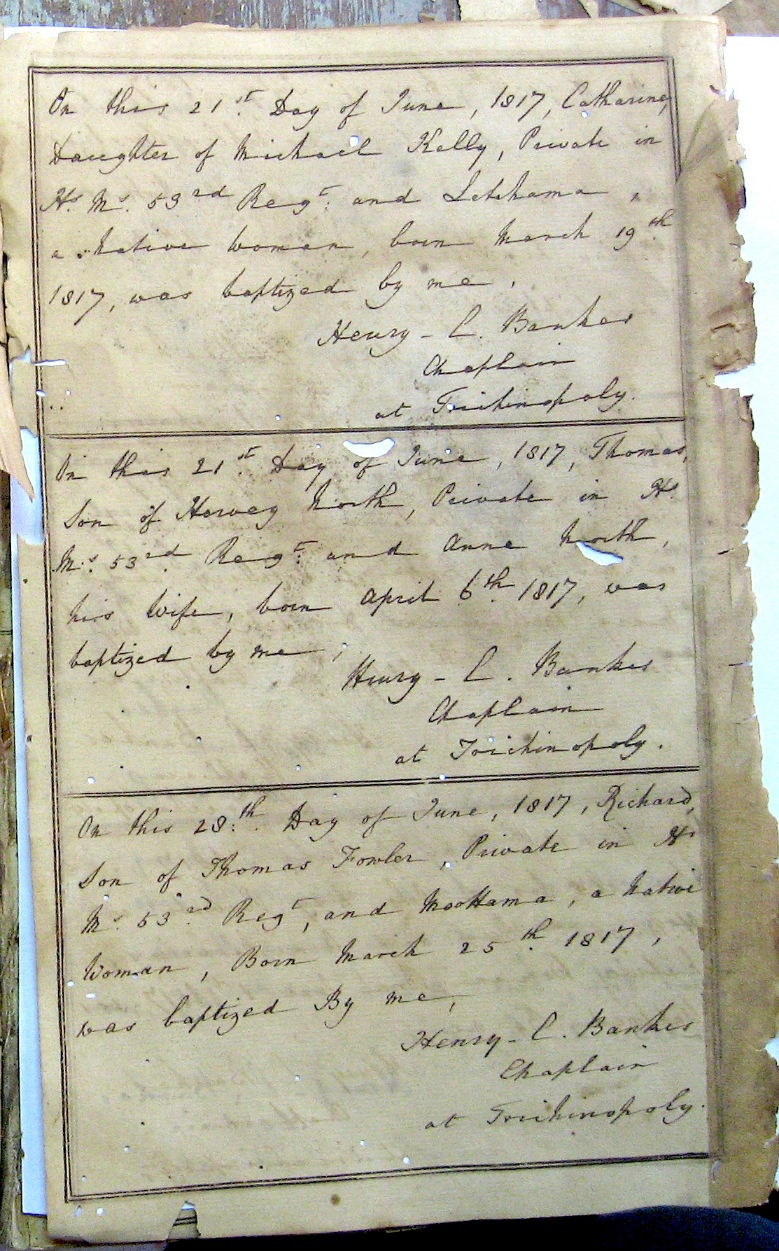 On this 21st Day of June, 1817, Catharine,
Daughter of Michael Kelly, Private in
Hs. Ms. 53rd Regt. and Letchama,
a Native Woman, born March 19th
1817, was baptized by me,
Henry - C. Bankes
Chaplain
at Trichinopoly.
On this 21st Day of June, 1817, Thomas,
Son of Hervey North, Private in Hs.
Ms. 53rd Regt. and Anne North,
his Wife, born April 6th 1817, was
baptized by me,
Henry - C. Bankes
Chaplain
at Trichinopoly.
On this 28th Day of June, 1817, Richard,
Son of Thomas Fowler, Private in Hs
Ms. 53rd Regt, and Moottama, a Native
Woman, Born March 25th 1817,
was baptized By me,
Henry - C. Bankes
Chaplain
at Trichinopoly.